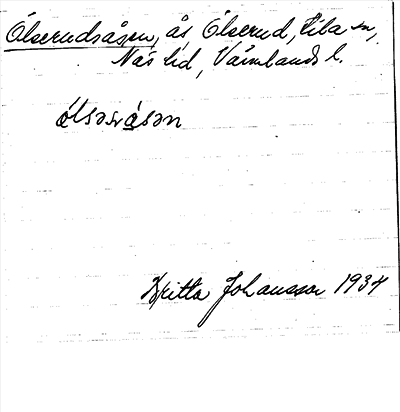 Ölserudsåsen, ås Ölserud, Eda sn,
Näs hd, Värmlands l.
Britta Johansson 1934